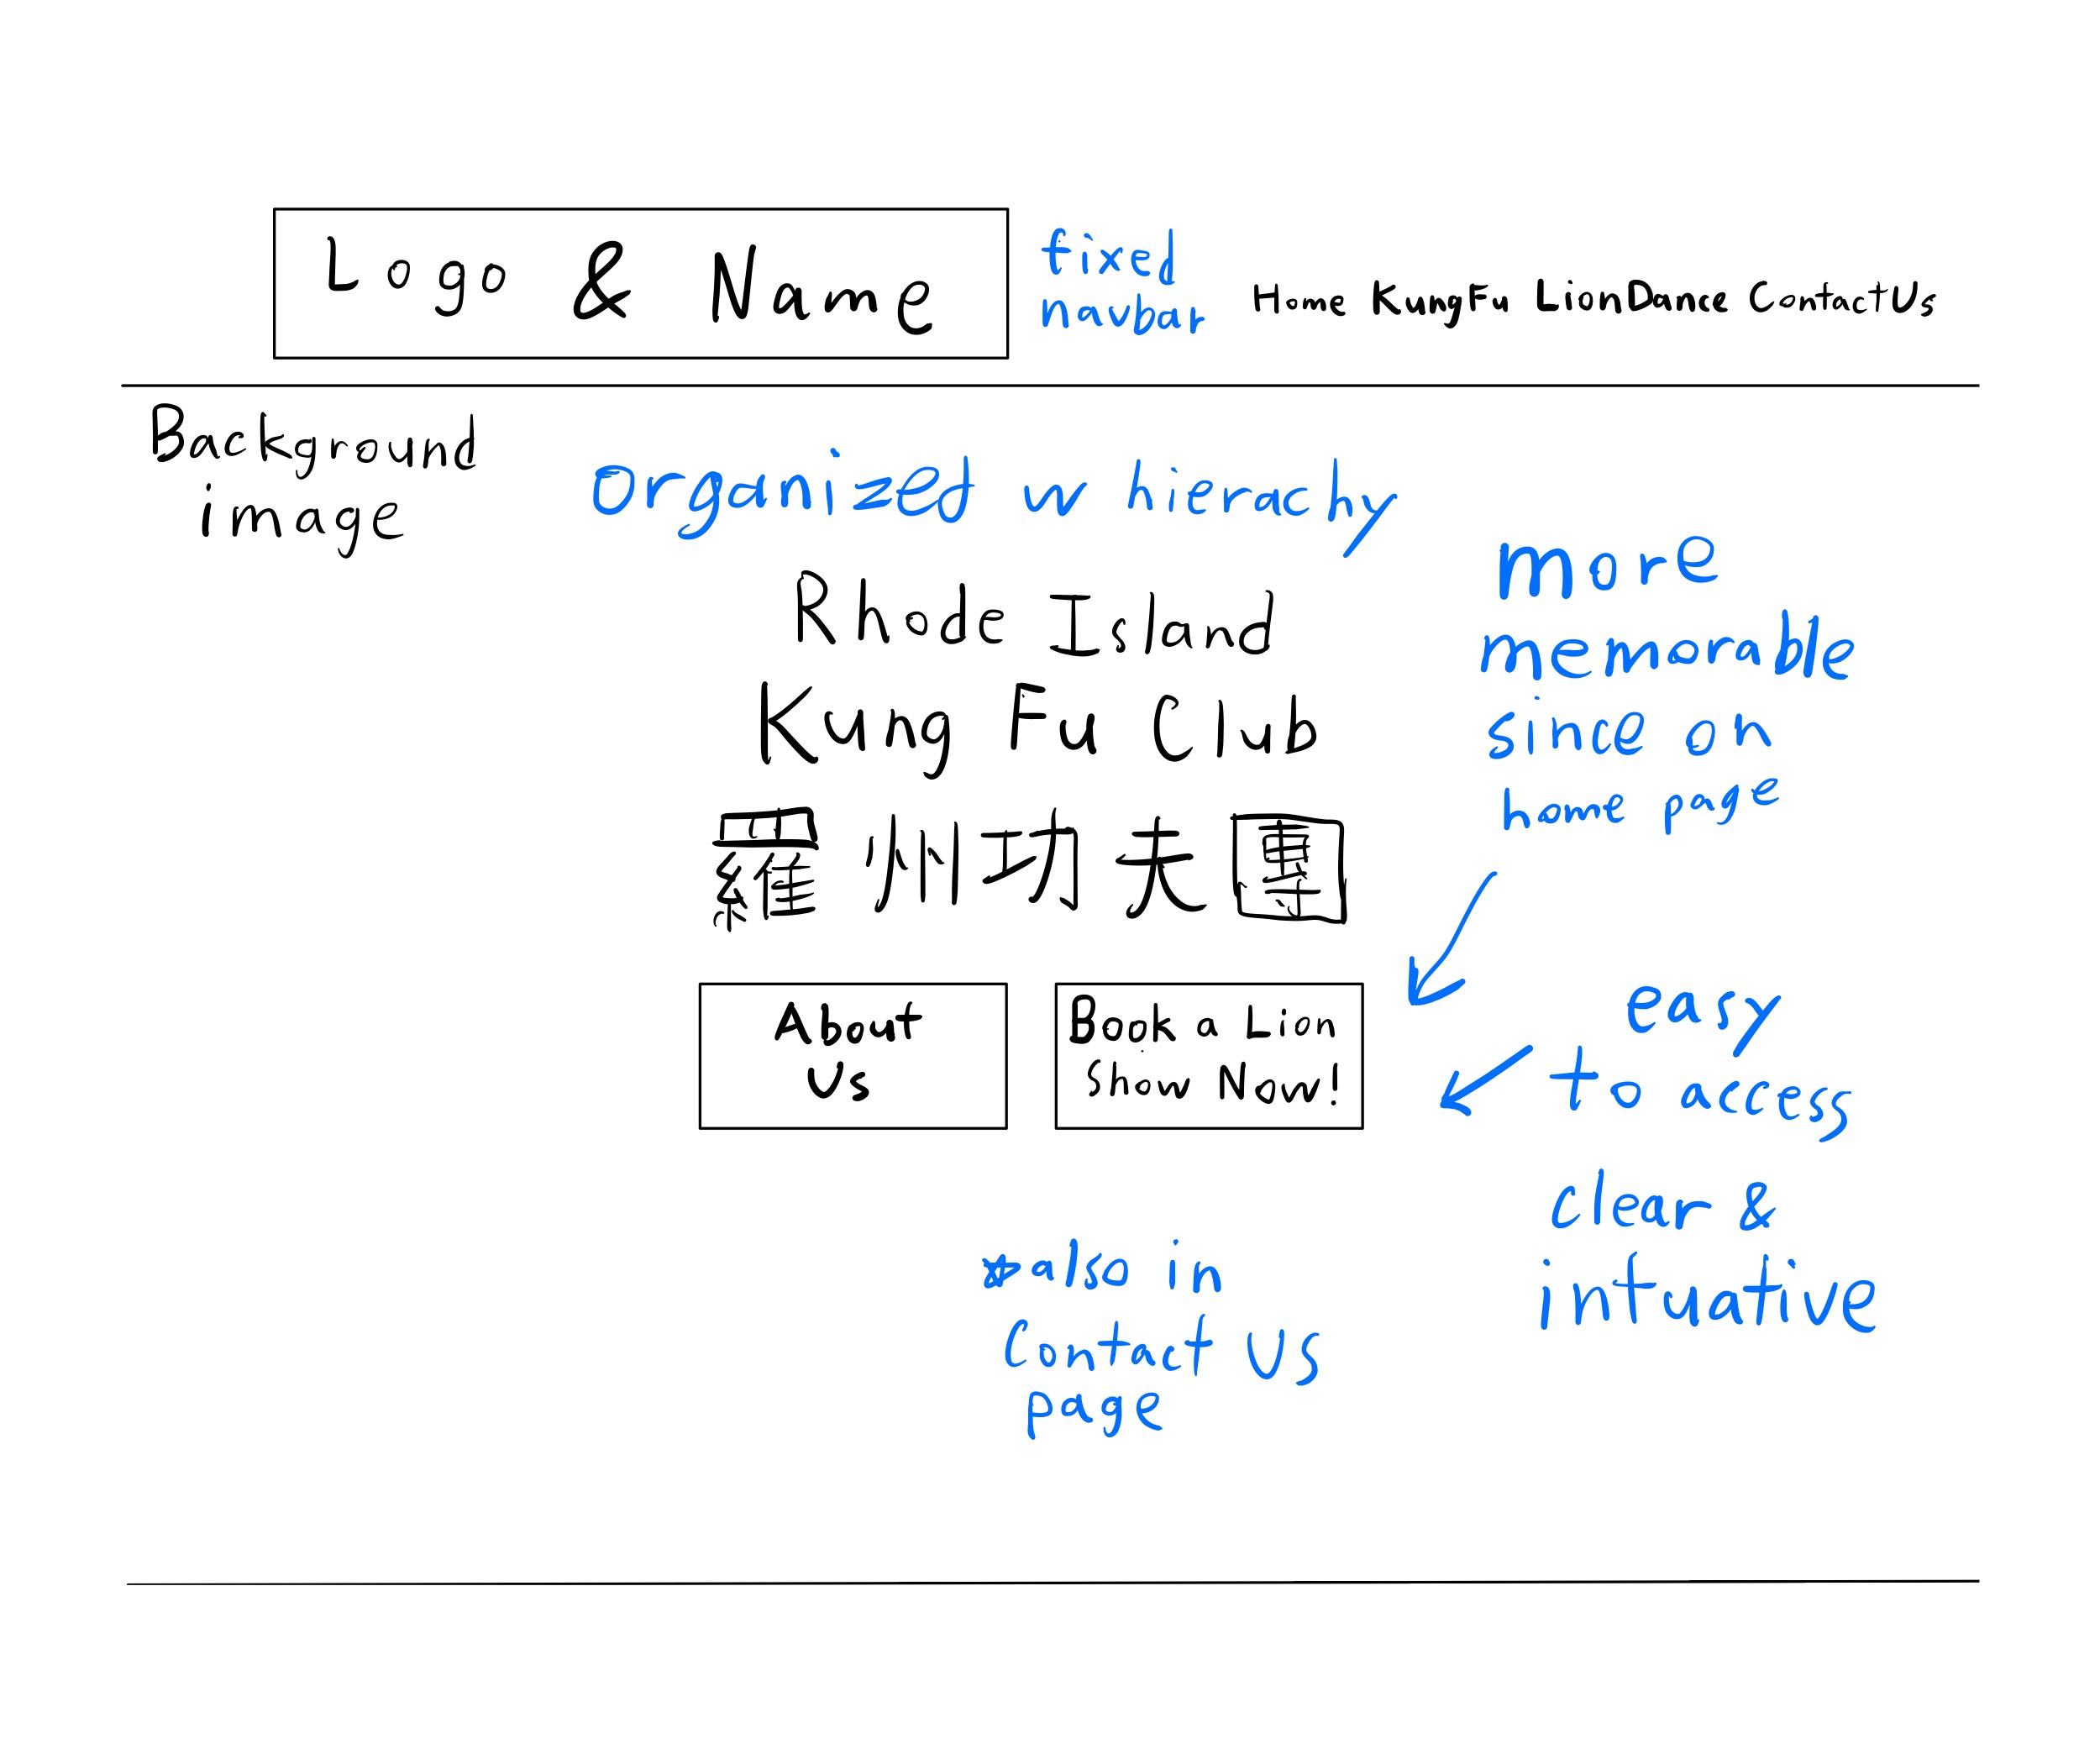 Logo & Name
fixed
navbar
Home KungFu LionDance ContactUs
Background
image
Organized w hierachy
Rhode Island
Kung Fu Club
羅州功夫團
more
memorable
since on
home page
About
Us
Book a Lion
Show Now!
easy
to access
clear &
intuative
*also in
Contact US
page